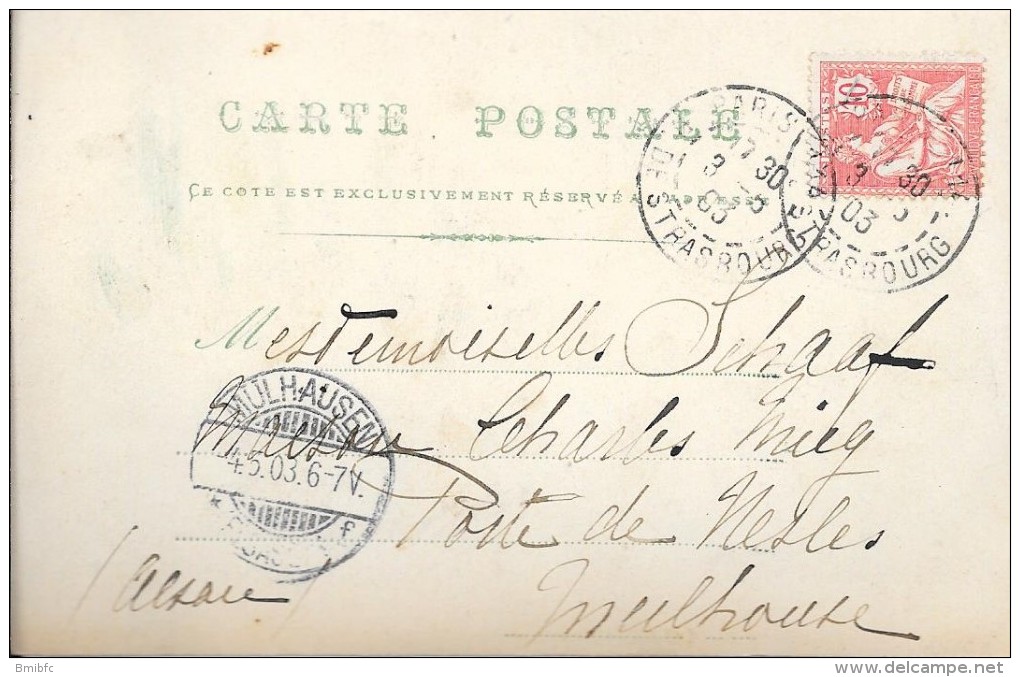 CARTE POSTALE
CE COTÉ EST EXCLUSIVEMENT RÉSERVÉ A L'ADRESSE
10
PARIS
17 30
3 5
03
DE STRASBOURG
17 30
3 5
03
STRASBOURG
Mesdemoiselles Schaaf
Maison Charles Mieg
Porte de Nesles
Mulhouse
(Alsace)
MÜLHAUSEN
4.5.03.6-7V.
* f
Bmibfc
http://www.delcampe.net